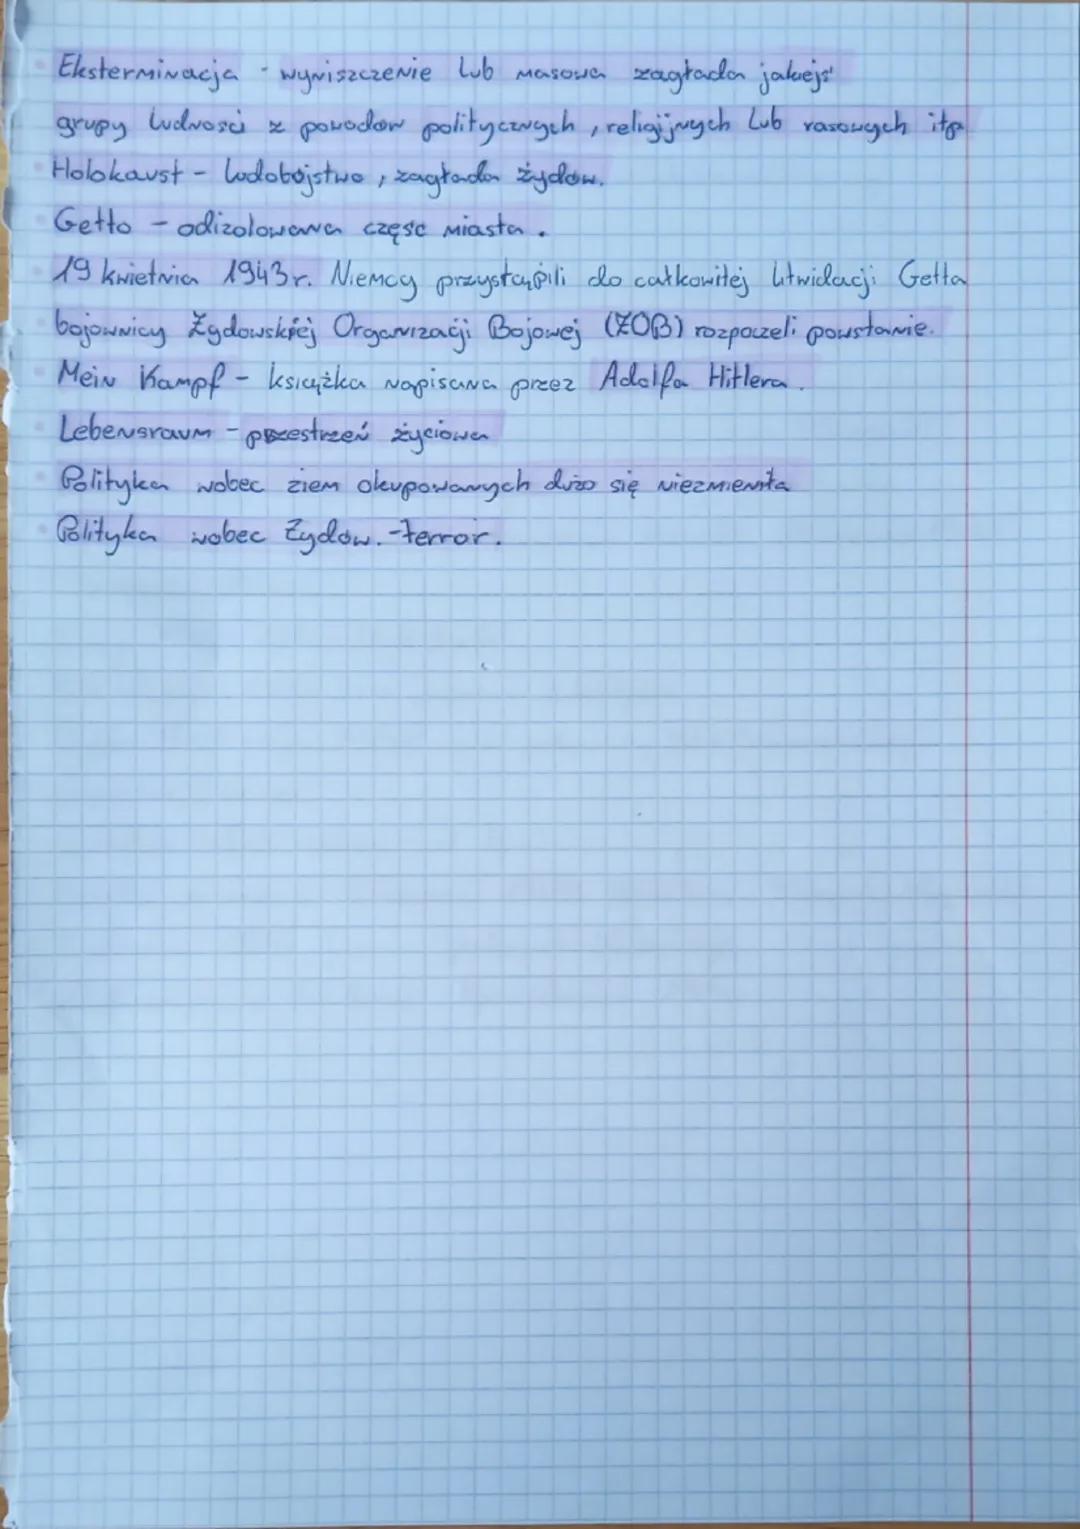 Eksterminacja - wyniszczenie lub masowa zagłada jakiejś
grupy ludności z powodów politycznych, religijnych lub rasowych itp
Holokaust - ludobójstwo, zagłada żydów.
Getto - odizolowana część miasta.
19 kwietnia 1943r. Niemcy przystąpili do całkowitej litwidacji Getta
bojownicy Żydowskiej Organizacji Bojowej (ŻOB) rozpoczeli powstanie.
Mein Kampf - książka napisana przez Adolfa Hitlera.
Lebensraum - przestrzeń życiowa
Polityka wobec ziem okupowanych dużo się niezmieniła
Polityka wobec Żydów.-terror.